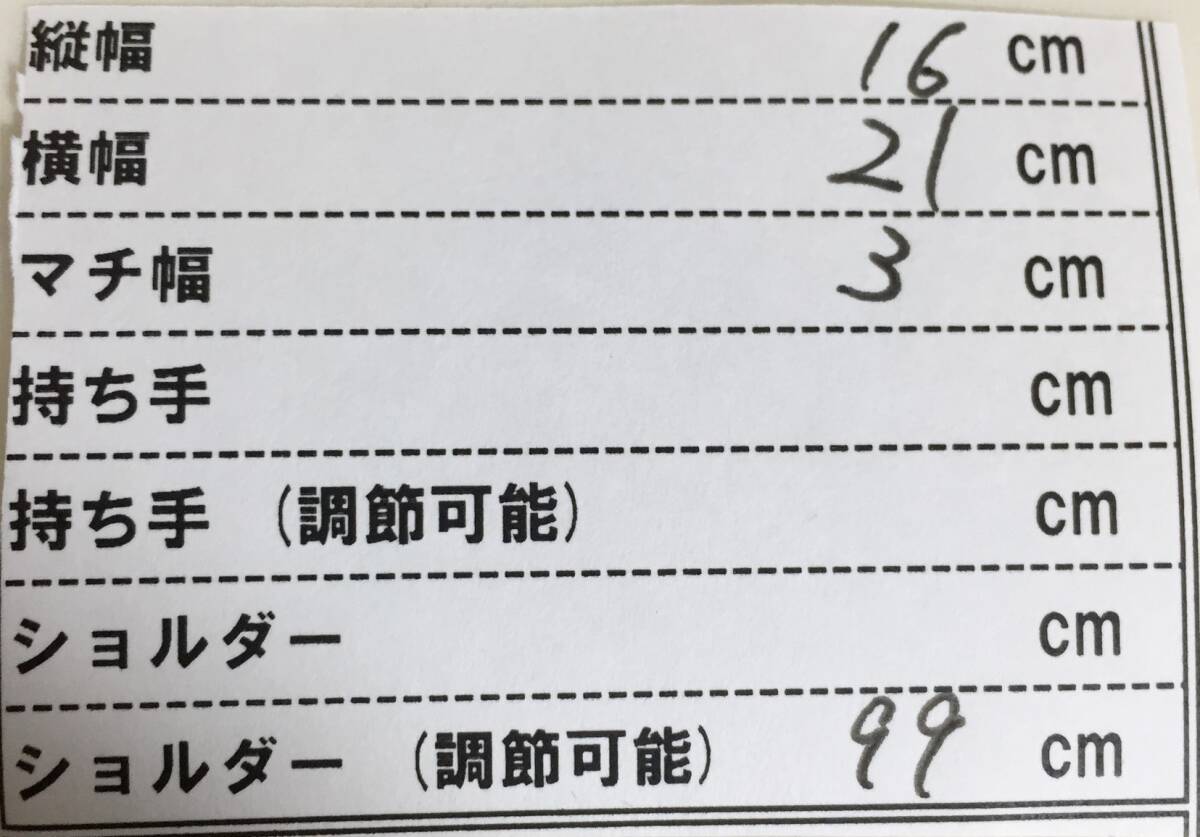 縦幅 16 cm
横幅 21 cm
マチ幅 3 cm
持ち手 cm
持ち手 (調節可能) cm
ショルダー cm
ショルダー (調節可能) 99 cm